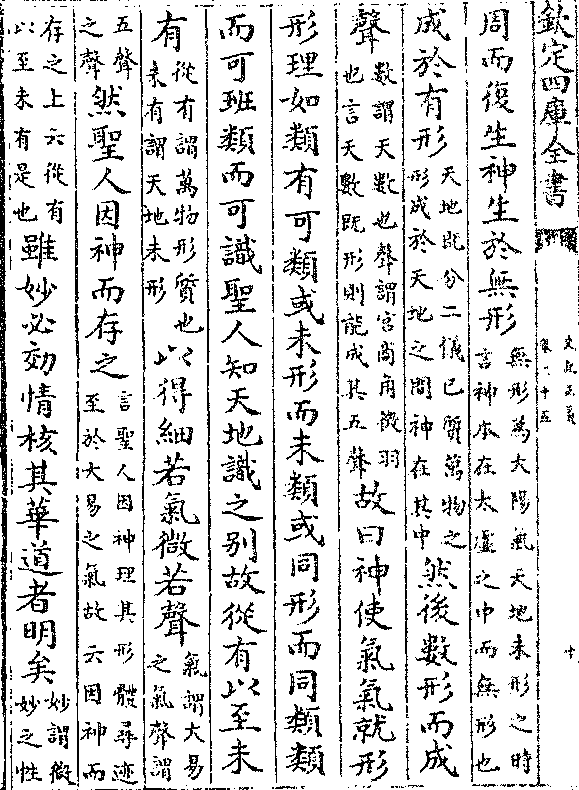 欽定四庫全書
史記正義
卷二十五
十
周而復生神生於無形
無形為大陽氣天地未形之時
言神本在太虛之中而無形也
成於有形
天地既分二儀已質萬物之
形成於天地之間神在其中
然後數形而成
聲
數謂天數也聲謂宮商角徵羽
也言天數既形則能成其五聲
故曰神使氣氣就形
形理如類有可類或未形而未類或同形而同類類
而可班類而可識聖人知天地識之别故從有以至未
有
從有謂萬物形質也
未有謂天地未形
以得細若氣微若聲
氣謂大易
之氣聲謂
五聲
之聲
然聖人因神而存之
言聖人因神理其形體尋迹
至於大易之氣故云因神而
存之上云從有
以至未有是也
雖妙必効情核其華道者明矣
妙謂微
妙之性